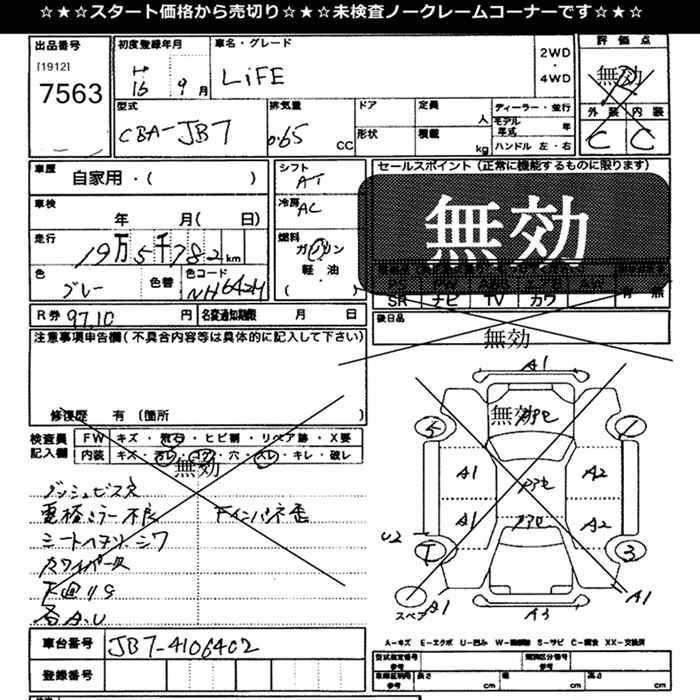 ☆★☆★スタート価格から売切り☆★☆★未検査ノークレームコーナーです☆★☆
出品番号
[1912]
7563
初度登録年月
H
16 9 月
車名・グレード
LiFE
2WD
・
4WD
評価点
無効
外装 内装
C C
型式
CBA-JB7
排気量
0.65 CC
ドア
形状
定員 人
積載 kg
ディーラー・並行
モデル年式 年
ハンドル 左・右
車歴
自家用・( )
車検
年 月( 日)
走行
19万5千782km
色
グレー
色替
色コード
NH642M
シフト
AT
冷房
AC
燃料
ガソリン
軽・油
( )
セールスポイント(正常に機能するものに限ります)
無効
PS PW ABS エアB AW
SR ナビ TV カワ 有 無
後日品
無効
R券 97.10 円
名変通知期限 月 日
注意事項申告欄(不具合内容等は具体的に記入して下さい)
修復歴 有(箇所 )
検査員記入欄
FW キズ・飛石・ヒビ割・リペア跡・X要
内装 キズ・汚レ・コゲ・穴・スレ・キレ・破レ
無効
ダッシュビス穴
電格ミラー不良
シートヘタリ・シワ
下回りS
各A.U
A1
無効
5
1
A1 A2
A1 A2
U2
3
スペア
A1
A3
A1
A-キズ E-エクボ U-凹み W-補修跡 S-サビ C-腐食 XX-交換済
車台番号
JB7-4106402
登録番号
型式指定番号
参考
類別区分番号
参考
車庫証明用
参考
長さ cm
幅 cm
高さ cm